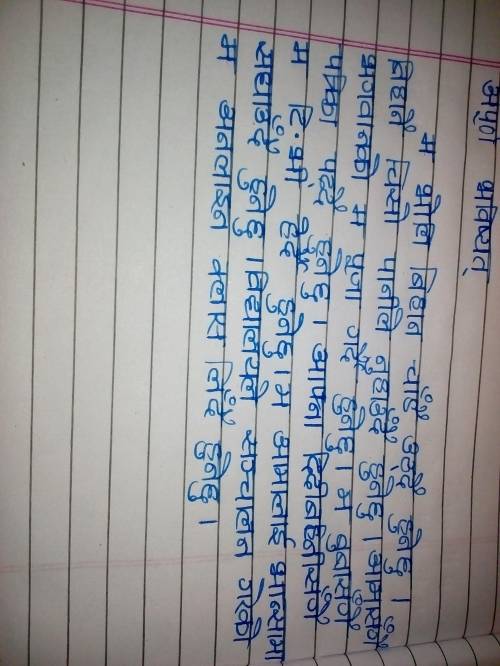 अपूर्ण भविष्यत्
म भोलि बिहान चाँडै उठ्दै हुनेछु ।
बिहानै चिसो पानीले नुहाउँदै हुनेछु । आमासँगै
भगवानको म पूजा गर्दै हुनेछु । म बुवासँगै
पत्रिका पढ्दै हुनेछु । आफ्ना दिदीबहिनीसँगै
म टि.भी. हेर्दै हुनेछु । म आमालाई भान्सामा
सघाउँदै हुनेछु । विद्यालयले सञ्चालन गरेको
म अनलाइन क्लास लिँदै हुनेछु ।